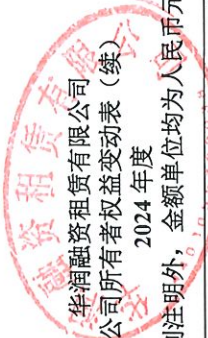 华润融资租赁有限公司
公司所有者权益变动表（续）
2024 年度
别注明外，金额单位均为人民币元
融资租赁有限